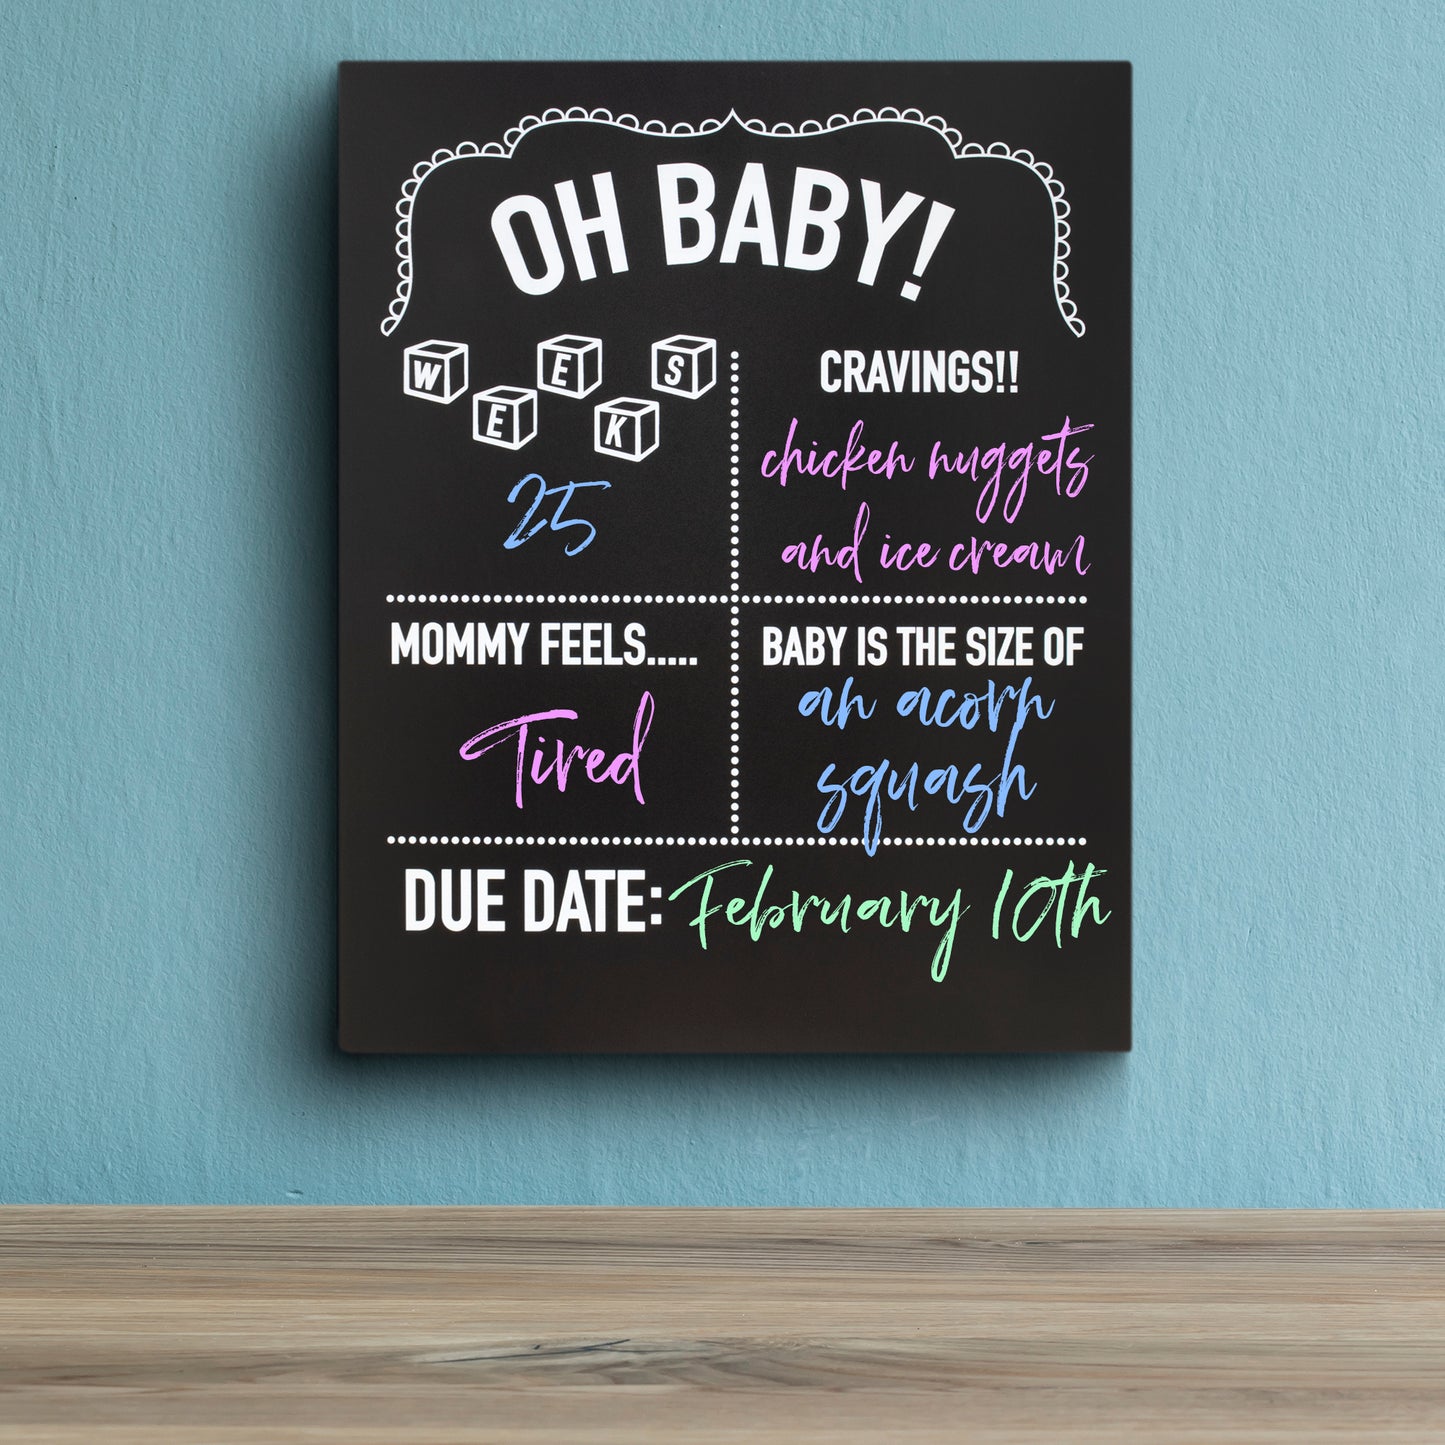 OH BABY!
WEEKS
25
CRAVINGS!!
chicken nuggets
and ice cream
MOMMY FEELS.....
Tired
BABY IS THE SIZE OF
an acorn
squash
DUE DATE: February 10th